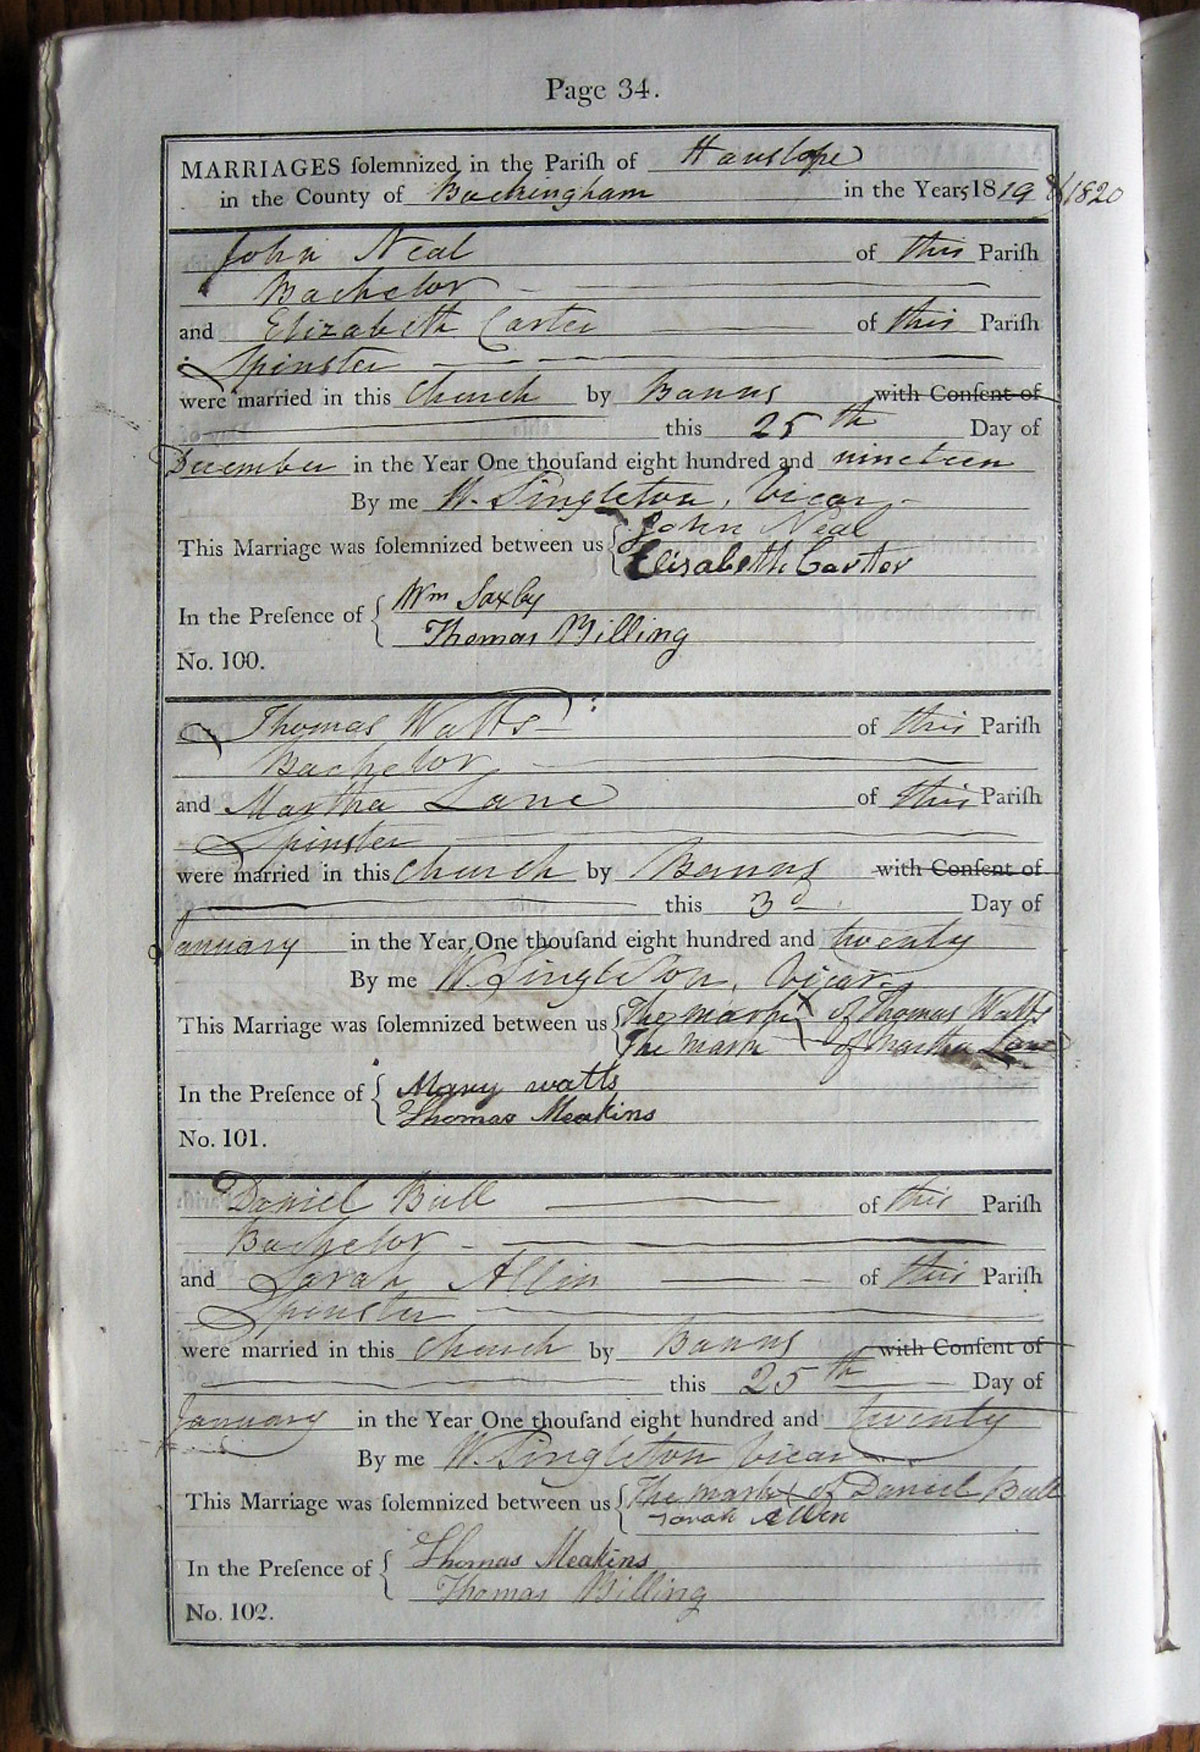 Page 34.
MARRIAGES ſolemnized in the Pariſh of Hanslope
in the County of Buckingham in the Years 1819 & 1820
John Neal of this Pariſh
Bachelor
and Elizabeth Carter of this Pariſh
Spinster
were married in this Church by Banns with Conſent of
this 25th Day of
December in the Year One thouſand eight hundred and nineteen
By me W. Singleton, Vicar
This Marriage was ſolemnized between us { John Neal
Elisabeth Cartter
In the Preſence of { Wm Saxby
Thomas Billing
No. 100.
Thomas Watts of this Pariſh
Bachelor
and Martha Lane of this Pariſh
Spinster
were married in this Church by Banns with Conſent of
this 3d Day of
January in the Year One thouſand eight hundred and twenty
By me W. Singleton, Vicar
This Marriage was ſolemnized between us { The mark X of Thomas Watts
The mark X of Martha Lane
In the Preſence of { Mary watts
Thomas Meakins
No. 101.
Daniel Bull of this Pariſh
Bachelor
and Sarah Allin of this Pariſh
Spinster
were married in this Church by Banns with Conſent of
this 25th Day of
January in the Year One thouſand eight hundred and twenty
By me W. Singleton Vicar
This Marriage was ſolemnized between us { The mark X of Daniel Bull
Sarah Allen
In the Preſence of { Thomas Meakins
Thomas Billing
No. 102.